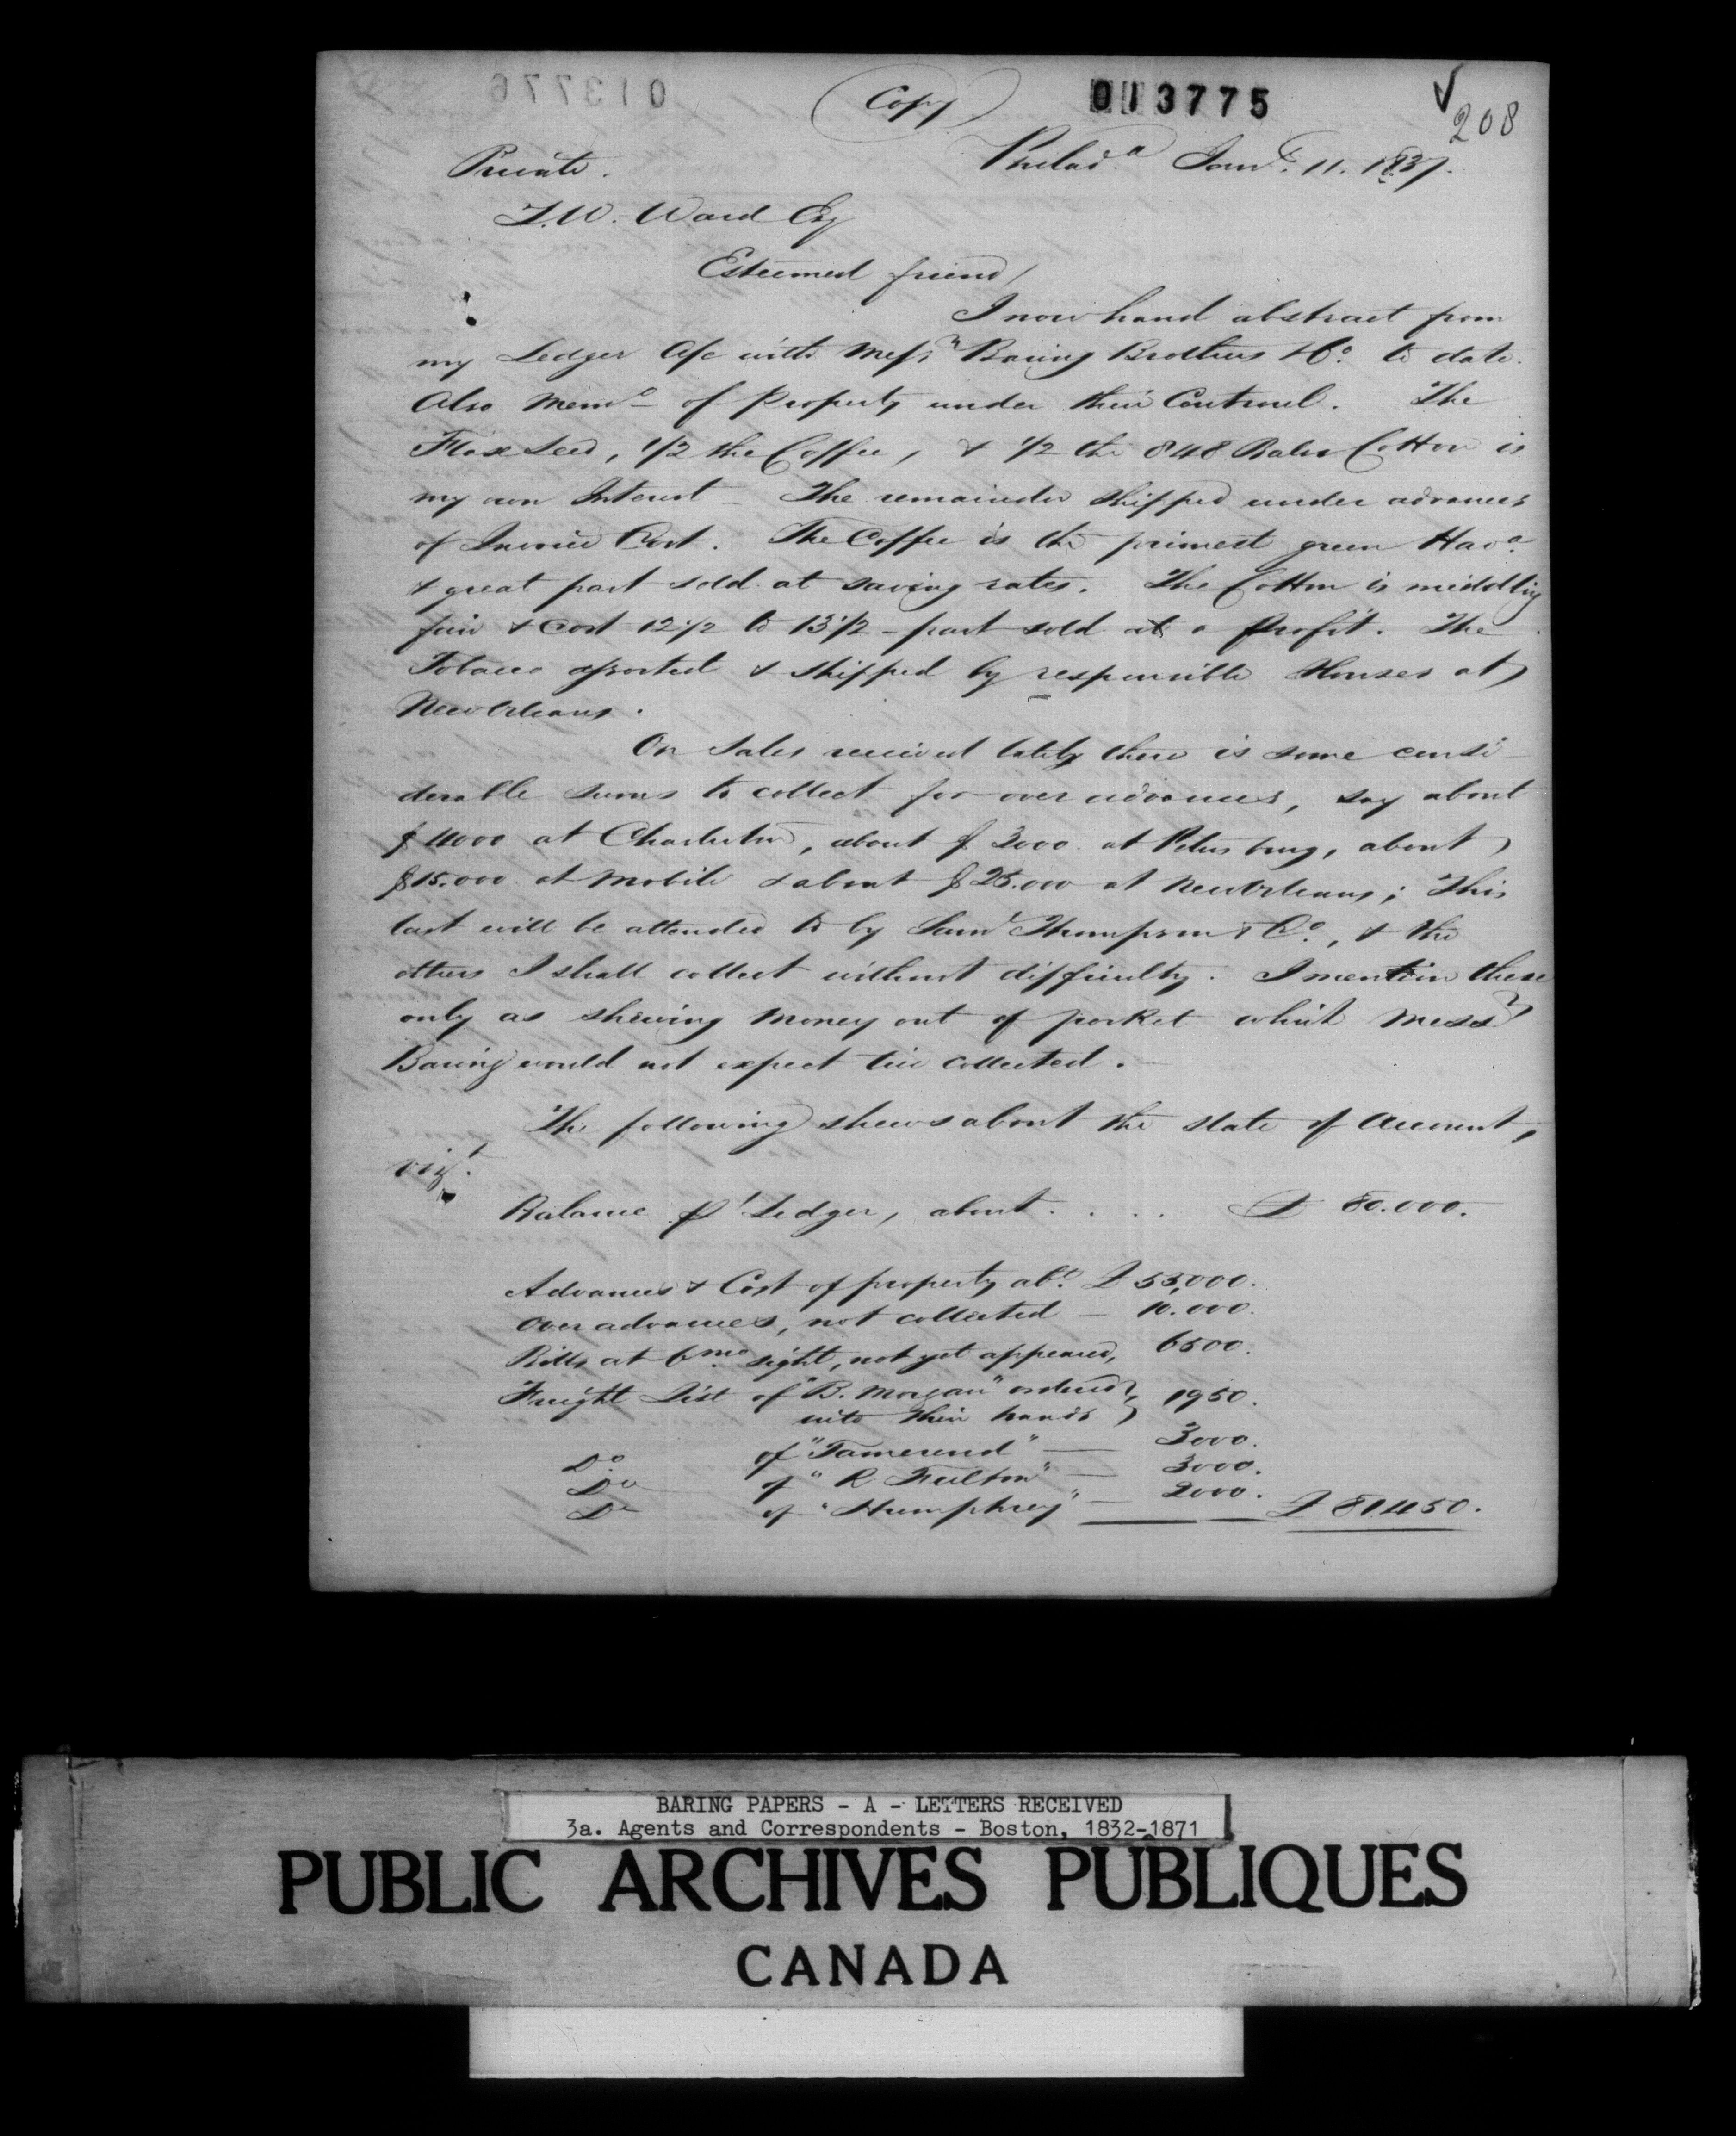 (Copy)
013775
208
Private.
Philad.a Jany. 11. 1837.
T. W. Ward Esq
Esteemed friend/
I now hand abstract from
my Ledger a/c with Messrs Baring Brothers & Co. to date.
Also Memo of Property under their Controul. The
Flaxseed, 1/2 the Coffee, & 1/2 the 848 Bales Cotton is
my own Interest - The remainder shipped under advances
of Invoice Cost. The Coffee is the primest green Hava.
& great part sold at saving rates. The Cotton is middling
fair & Cost 12 1/2 to 13 1/2 - part sold at a profit. The
Tobacco assorted & shipped by responsible Houses at
New Orleans.
On Sales received lately there is some consi-
derable sums to collect for over advances, say about
$4000 at Charleston, about $3000 at Petersburg, about
$15.000 at Mobile & about $25.000 at New Orleans; This
last will be attended to by Saml Thompson & Co., & the
others I shall collect without difficulty. I mention these
only as shewing Money out of pocket which Messrs
Baring would not expect till collected.
The following shews about the state of Account,
vizt.
Balance pr Ledger, about . . . . £ 80.000.
Advances & Cost of property abt. £ 55,000.
Over advances, not collected - 10.000.
Bills at 6 mo. sight, not yet appeared, 6500.
Freight List of "B. Morgan" ordered } 1950.
into their hands
Do of "Tamerend" — 3000.
Do of "R Fulton" — 3000.
Do of "Humphrey" — 2000. £ 81.450.
BARING PAPERS - A - LETTERS RECEIVED
3a. Agents and Correspondents - Boston, 1832-1871
PUBLIC ARCHIVES PUBLIQUES
CANADA